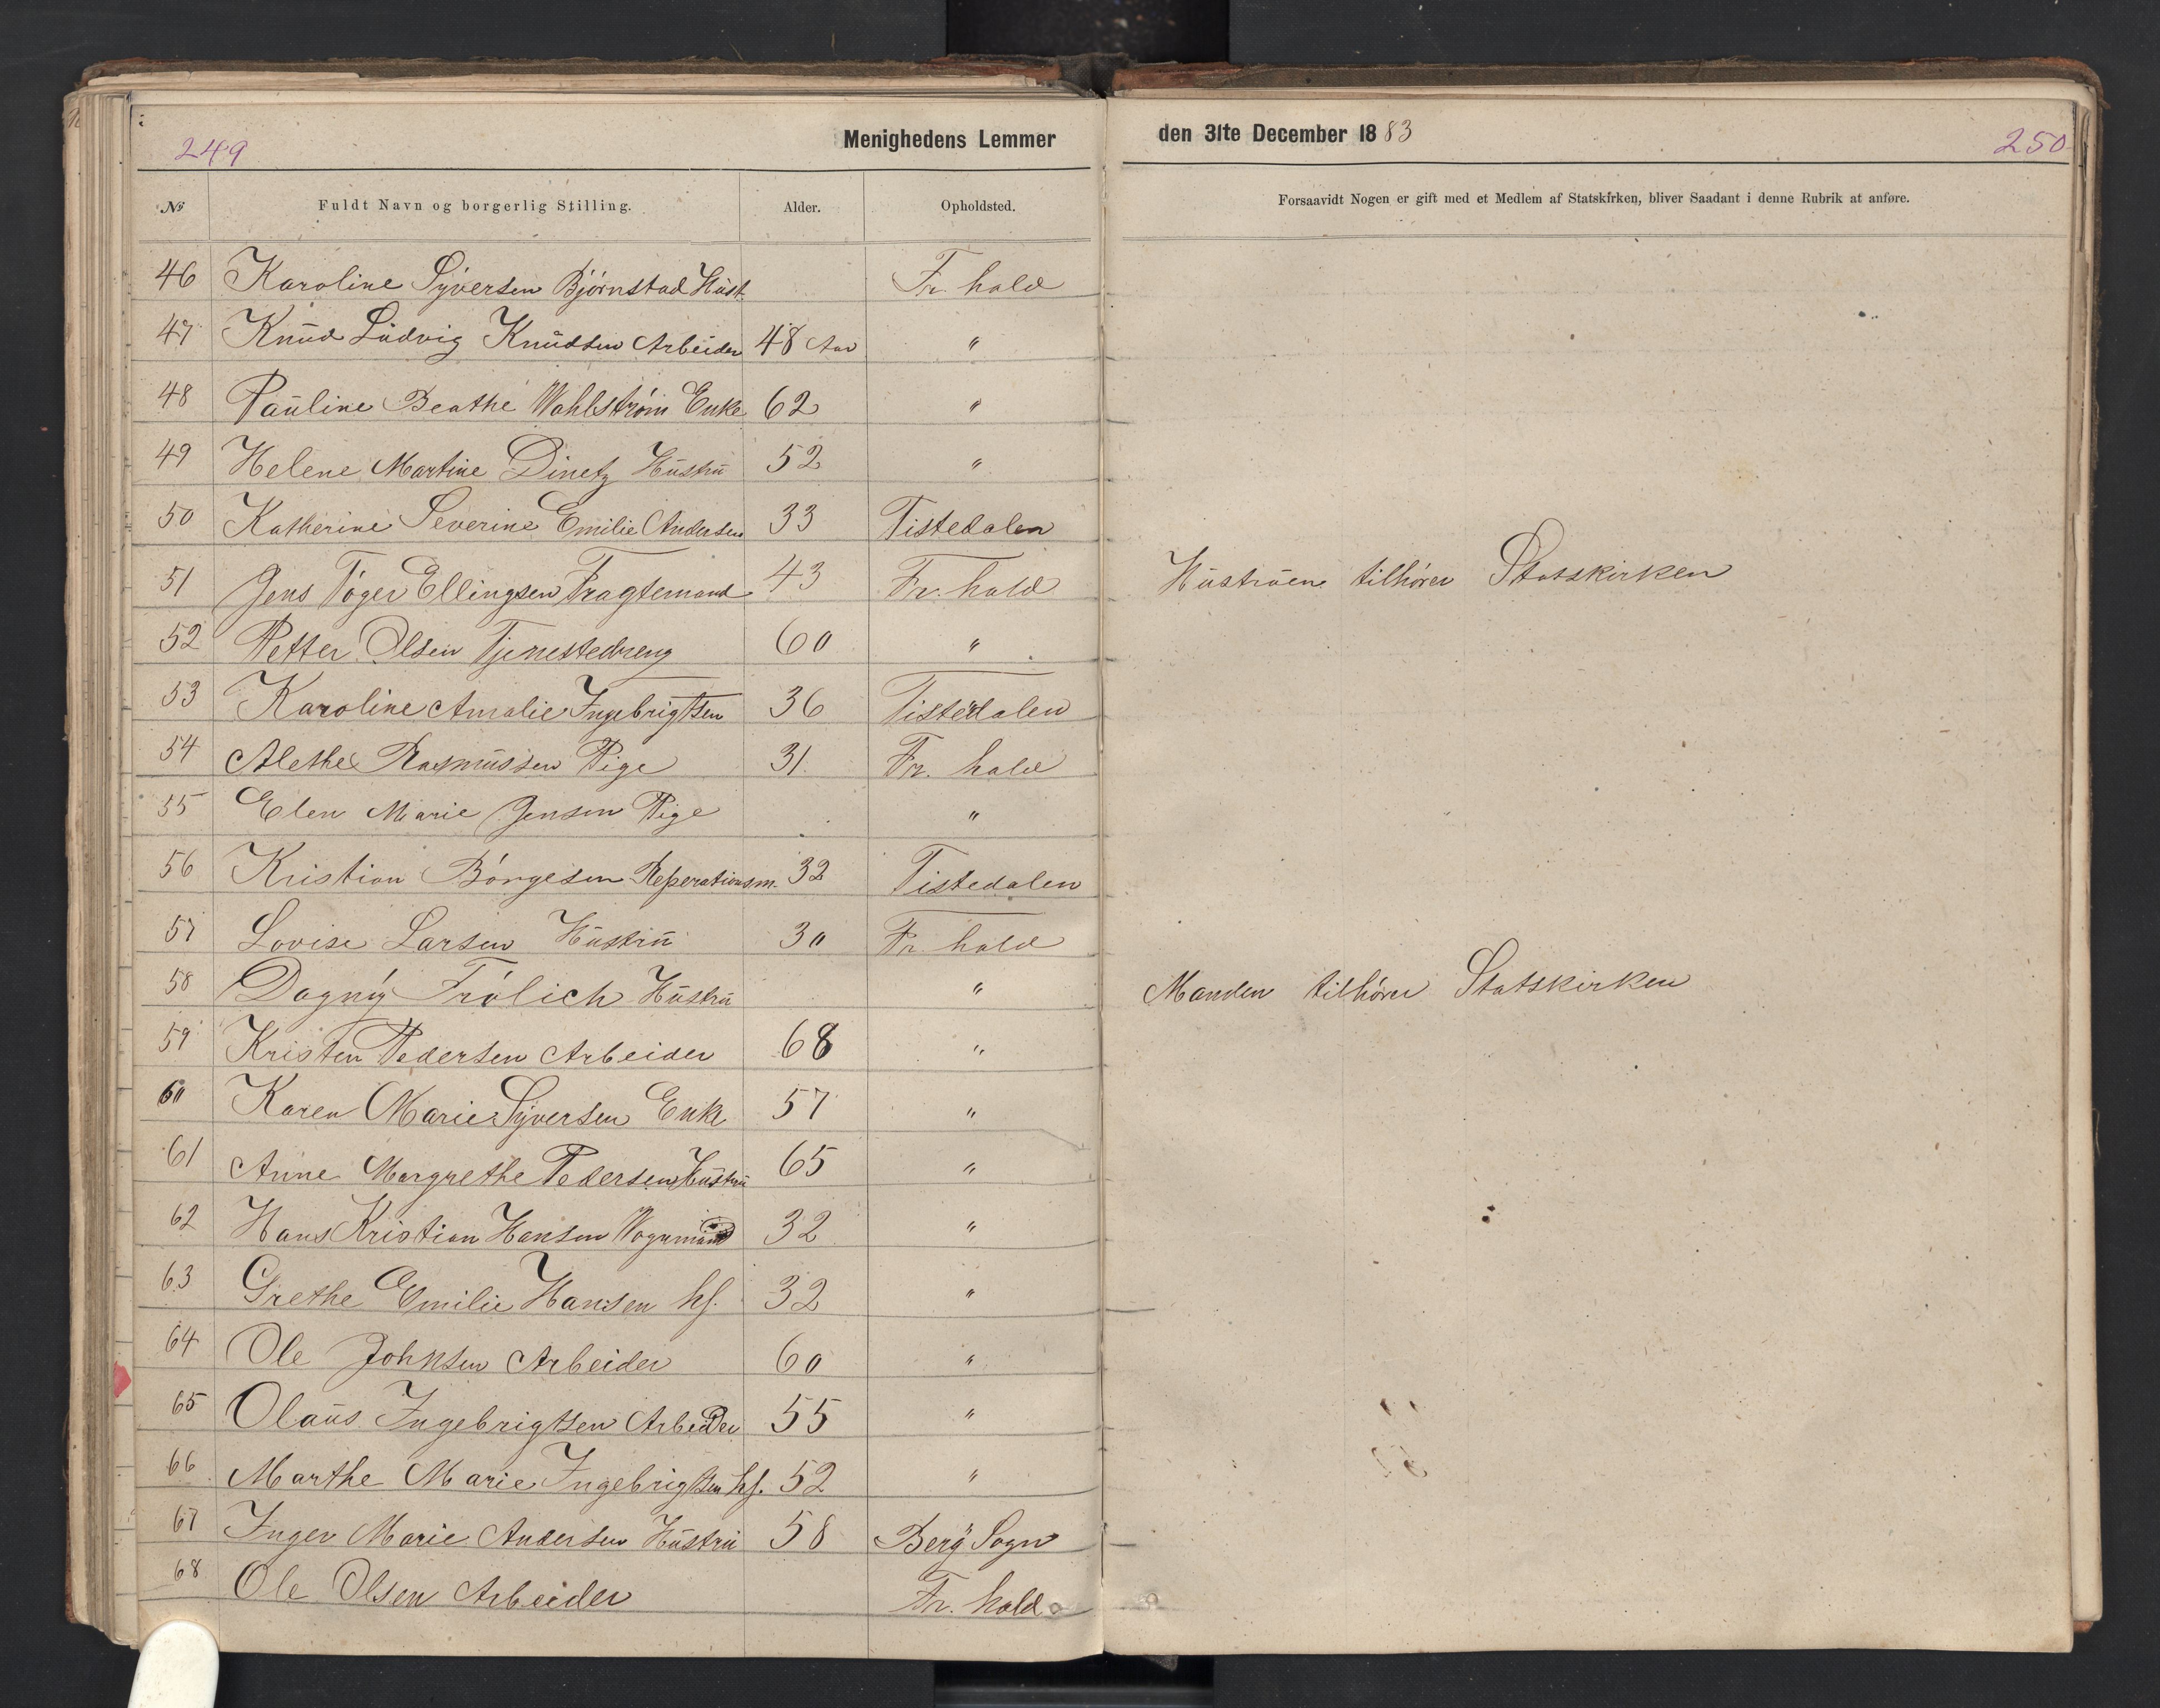 249
Menighedens Lemmer
den 31te December 1883
250
No Fuldt Navn og borgerlig Stilling. Alder. Opholdsted. Forsaavidt Nogen er gift med et Medlem af Statskirken, bliver Saadant i denne Rubrik at anføre.
46 Karoline Syversen Bjørnstad Hust. Fr. hald
47 Knud Ludvig Knudsen Arbeider 48 Aar "
48 Pauline Beathe Wahlstrøm Enke 62 "
49 Helene Martine Dinetz Hustru 52 "
50 Katherine Severine Emilie Andersen 33 Tistedalen
51 Jens Tøger Ellingsen Fragtemand 43 Fr. hald Hustruen tilhører Statskirken
52 Petter Olsen Tjenestedreng 60 "
53 Karoline Amalie Ingebrigtsen 36 Tistedalen
54 Alethe Rasmussen Pige 31 Fr. hald
55 Elen Marie Jensen Pige "
56 Kristian Børgesen Reperationsm. 32 Tistedalen
57 Lovise Larsen Hustru 30 Fr hald
58 Dagny Frølich Hustru " Manden tilhører Statskirken
59 Kristen Pedersen Arbeider 68 "
60 Karen Marie Syversen Enke 57 "
61 Anne Margrethe Pedersen Hustru 65 "
62 Hans Kristian Hansen Vognmand 32 "
63 Grethe Emilie Hansen hs. 32 "
64 Ole Johnsen Arbeider 60 "
65 Olaus Ingebrigtsen Arbeider 55 "
66 Marthe Marie Ingebrigtsen hs. 52 "
67 Inger Marie Andersen Hustru 58 Berg Sogn
68 Ole Olsen Arbeider Fr. hald